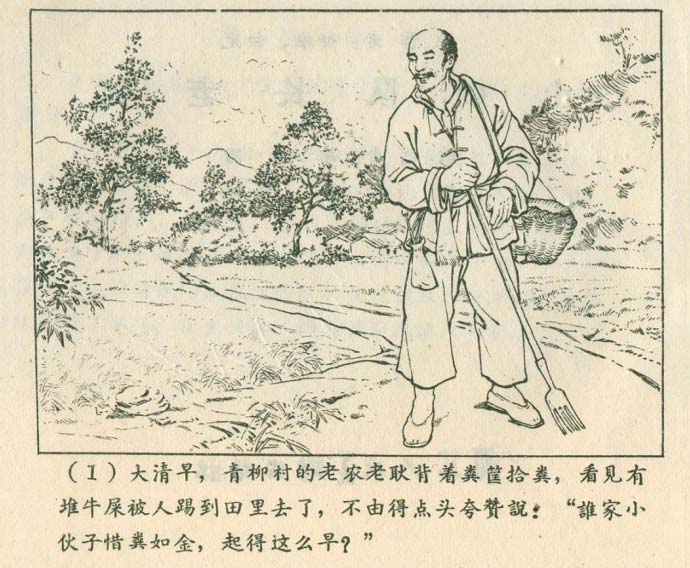 (1)大清早，青柳村的老农老耿背着粪筐拾粪，看見有
堆牛屎被人踢到田里去了，不由得点头夸赞說：“誰家小
伙子惜粪如金，起得这么早？”